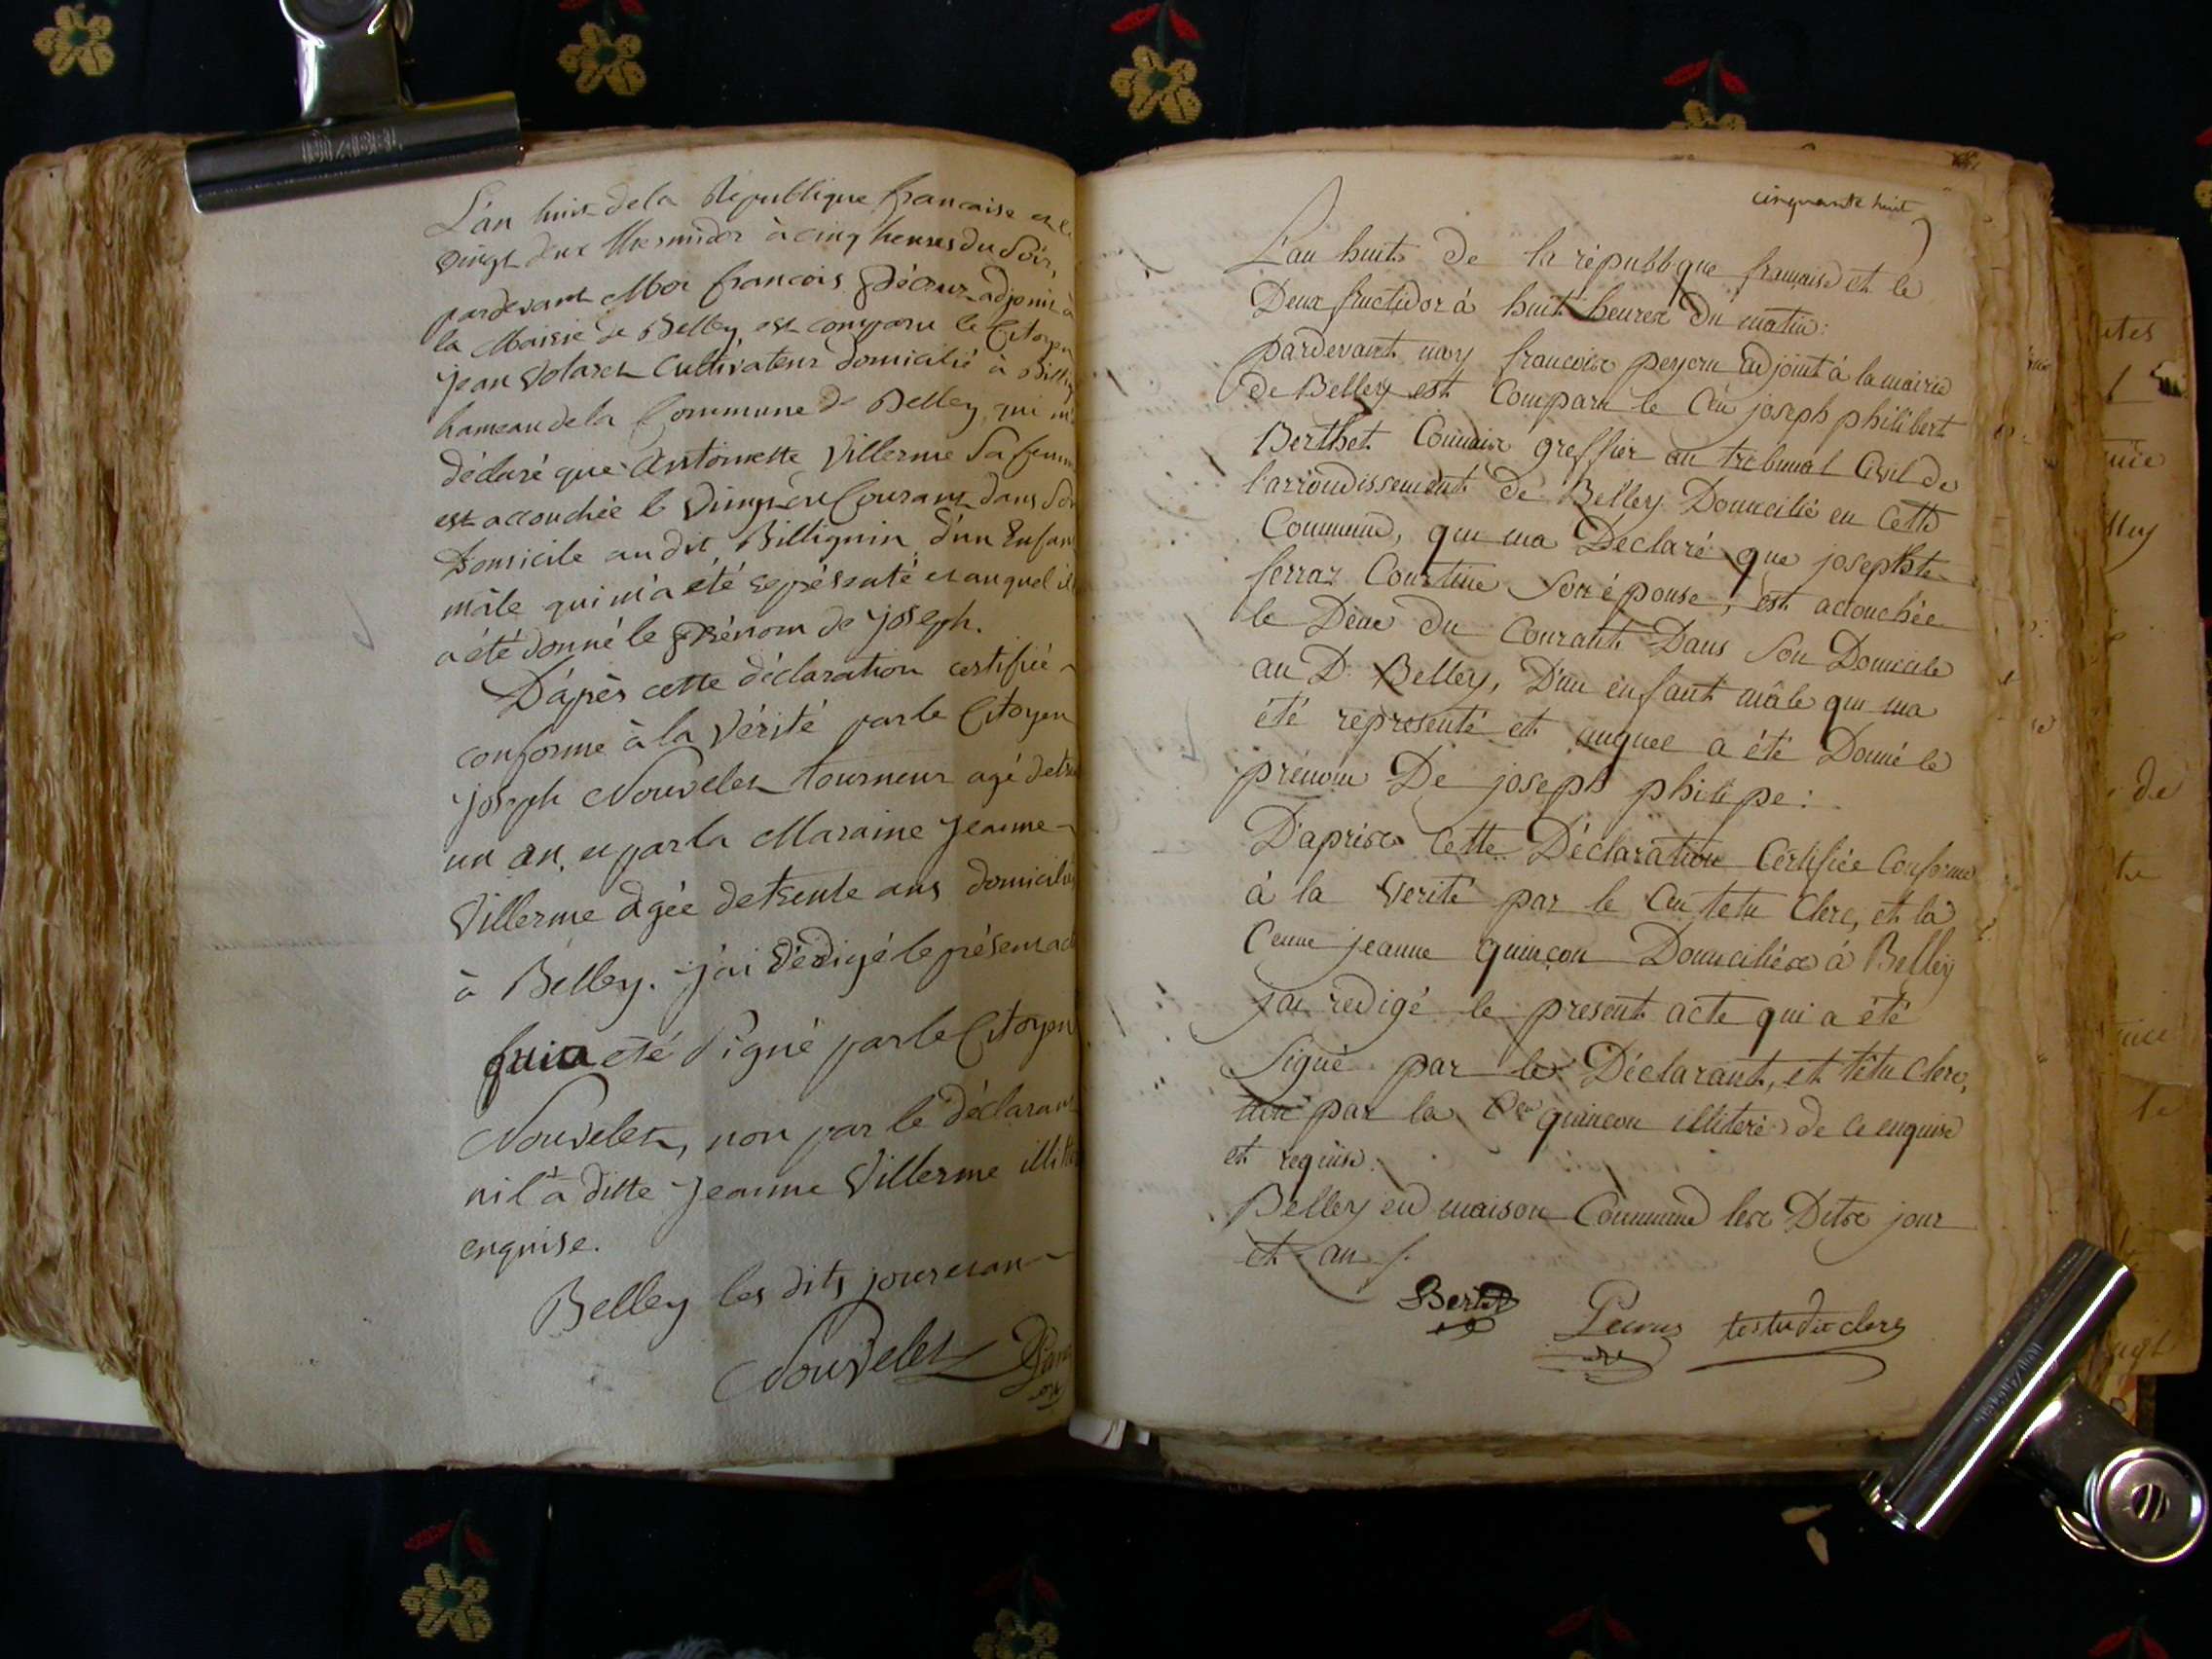 L'an huit de la République francaise et le
Vingt deux thermidor à cinq heures du Soir,
pardevant Moi francois adjoint à
la Mairie de Belley est comparu le Citoyen
jean Volaret Cultivateur domicilié à Billig
hameau de la Commune de Belley qui m'a
déclaré que Antoinette Villerme Sa femme
est accouchée le Vingt un Courant dans Son
Domicile au dit Billignin, d'un Enfant
mâle qui m'a été représenté et auquel il
a été donné le Prénom de joseph.
D'après cette déclaration certifiée
conforme à la Vérité par le Citoyen
joseph Nouvelet tourneur agé de trente
un an, et par la Maraine Jeanne
Villerme agée de trente ans domiciliés
à Belley. j'ai Rédigé le présent acte
qui a été Signé par le Citoyen
Nouvelet, non par le déclarant
ni la ditte Jeanne Villerme illit
enquise.
Belley les dits jour et an
Nouvelet
cinquante huit
L'an huit de la république francaise et le
Deux fructidor à huit heures du matin:
pardevant moy francois adjoint à la mairie
de Belley est Comparu le Cen joseph philibert
Berthet Commis greffier au tribunal Civil de
l'arrondissement de Belley Domicilié en Cette
Commune, qui ma Déclaré que josephte
ferraz Courtine Son épouse, est accouchée
le Deux du Courant Dans Son Domicile
au D. Belley, D'un enfant mâle qui ma
été représenté et auquel a été Donné le
prénom De joseph philipe:
D'après Cette Déclaration Certifiée Conforme
à la Verité par le Cen tetu Clerc, et la
Cenne jeanne quinçon Domiciliés à Belley
j'ai redigé le present acte qui a été
Signé par le Déclarant, et tétu Clerc,
non par la quinçon illiterée de ce enquise
et requise.
Belley en maison Commune les Dits jour
et an /.
Bertet testu dit clerc